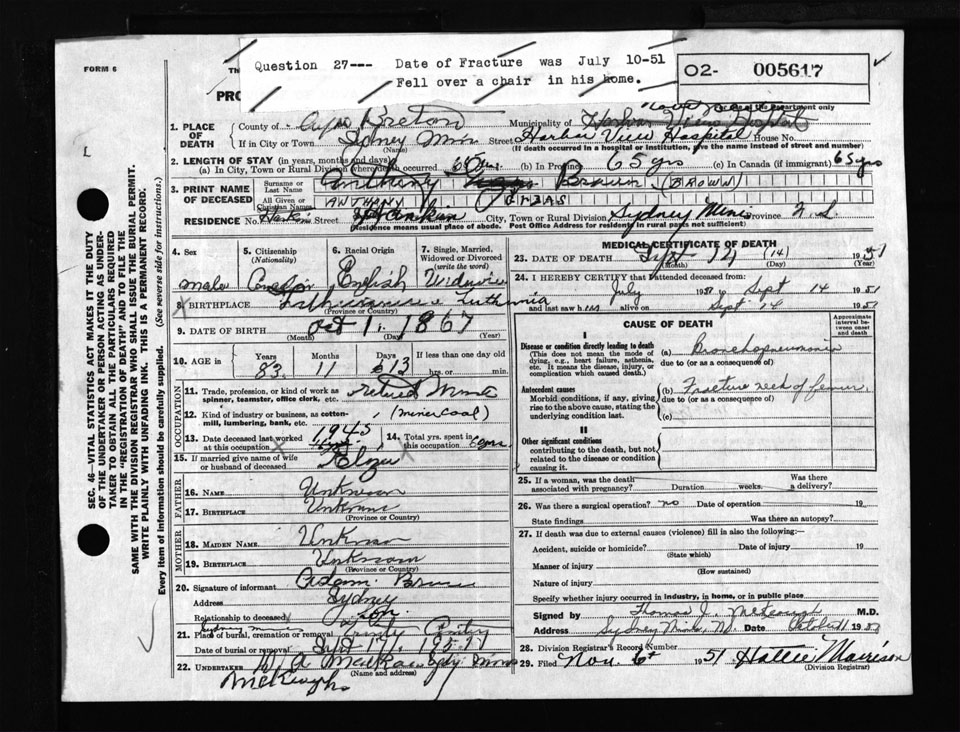 FORM 6
Question 27--- Date of Fracture was July 10-51
Fell over a chair in his home.
O2- 005617
Th
PRO
of the department only
1. PLACE OF DEATH
County of Cape Breton Municipality of
If in City or Town Sydney Mines Street Harbor View Hospital House No.
(Name) (If death occurred in a hospital or institution, give the name instead of street and number)
2. LENGTH OF STAY (in years, months and days)
(a) In City, Town or Rural Division where death occurred 65 yrs. (b) In Province 65 yrs (c) In Canada (if immigrant) 65 yrs
3. PRINT NAME OF DECEASED
Surname or Last Name Anthony Brown (BROWN)
All Given or Christian Names ANTHONY
RESIDENCE No. Street City, Town or Rural Division Sydney Mines Province N.S.
(Residence means usual place of abode. Post Office Address for residents in rural pays not sufficient)
4. Sex
male
5. Citizenship (Nationality)
6. Racial Origin
English
7. Single, Married, Widowed or Divorced (write the word)
8. BIRTHPLACE Luthunia
(Province or Country)
9. DATE OF BIRTH Oct 1, 1867
(Month) (Day) (Year)
10. AGE in
Years Months Days If less than one day old
83 11 13 hrs. or min.
OCCUPATION
11. Trade, profession, or kind of work as spinner, teamster, office clerk, etc. retired Miner
12. Kind of industry or business, as cotton-mill, lumbering, bank, etc. (miner coal)
13. Date deceased last worked at this occupation 1945
14. Total yrs. spent in this occupation
15. If married give name of wife or husband of deceased
FATHER
16. NAME Unknown
17. BIRTHPLACE Unknown
(Province or Country)
MOTHER
18. MAIDEN NAME Unknown
19. BIRTHPLACE Unknown
(Province or Country)
20. Signature of informant Adam
Address Sydney
Relationship to deceased Son
21. Place of burial, cremation or removal Sydney
Date of burial or removal Sept 17, 1951
22. UNDERTAKER
(Name and address)
MEDICAL CERTIFICATE OF DEATH
23. DATE OF DEATH Sept 14 (14) 1951
(Month) (Day) (Year)
24. I HEREBY CERTIFY that I attended deceased from:
July 1951 Sept 14 1951
and last saw him alive on Sept 14 1951
CAUSE OF DEATH
Approximate interval between onset and death
I
Disease or condition directly leading to death
(This does not mean the mode of dying, e.g., heart failure, asthenia, etc. It means the disease, injury, or complication which caused death.)
(a) Bronchopneumonia
due to (or as a consequence of)
Antecedent causes
Morbid conditions, if any, giving rise to the above cause, stating the underlying condition last.
(b) Fracture neck of femur
due to (or as a consequence of)
(c)
II
Other significant conditions contributing to the death, but not related to the disease or condition causing it.
25. If a woman, was the death associated with pregnancy? Duration weeks. Was there a delivery?
26. Was there a surgical operation? no Date of operation 19
State findings Was there an autopsy?
27. If death was due to external causes (violence) fill in also the following:—
Accident, suicide or homicide? Date of injury 19
(State which)
Manner of injury
(How sustained)
Nature of injury
Specify whether injury occurred in industry, in home, or in public place
Signed by Thomas J. McKeough M.D.
Address Sydney Mines, N.S. Date October 11 1951
28. Division Registrar's Record Number
29. Filed Nov. 6th 1951 Hattie Morrison
(Division Registrar)
SEC. 46—VITAL STATISTICS ACT MAKES IT THE DUTY
OF THE UNDERTAKER OR PERSON ACTING AS UNDER-
TAKER TO OBTAIN ALL THE PARTICULARS REQUIRED
IN THE "REGISTRATION OF DEATH" AND TO FILE THE
SAME WITH THE DIVISION REGISTRAR WHO SHALL ISSUE THE BURIAL PERMIT.
WRITE PLAINLY WITH UNFADING INK. THIS IS A PERMANENT RECORD.
Every item of information should be carefully supplied. (See reverse side for instructions.)